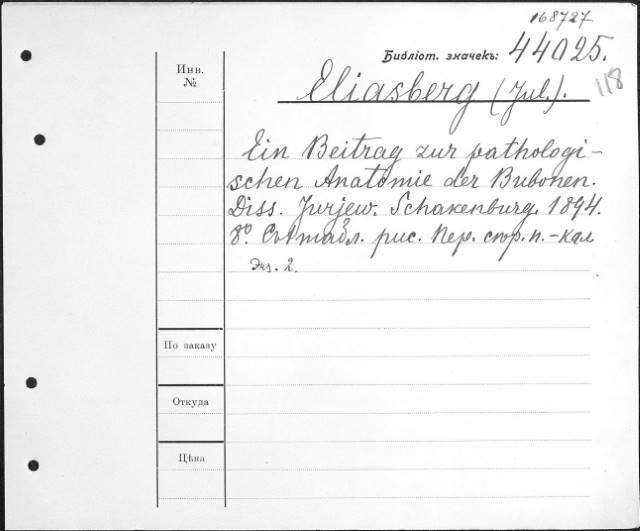 168727
Библіот. значекъ: 44025.
Инв.
№
Eliasberg (Jul.).
118
Ein Beitrag zur pathologi-
schen Anatomie der Bubonen.
Diss. Jurjew. Schakenburg. 1894.
8º. Съ 1 табл. рис. Пер. стор. п.-кал
Экз. 2.
По заказу
Откуда
Цѣна